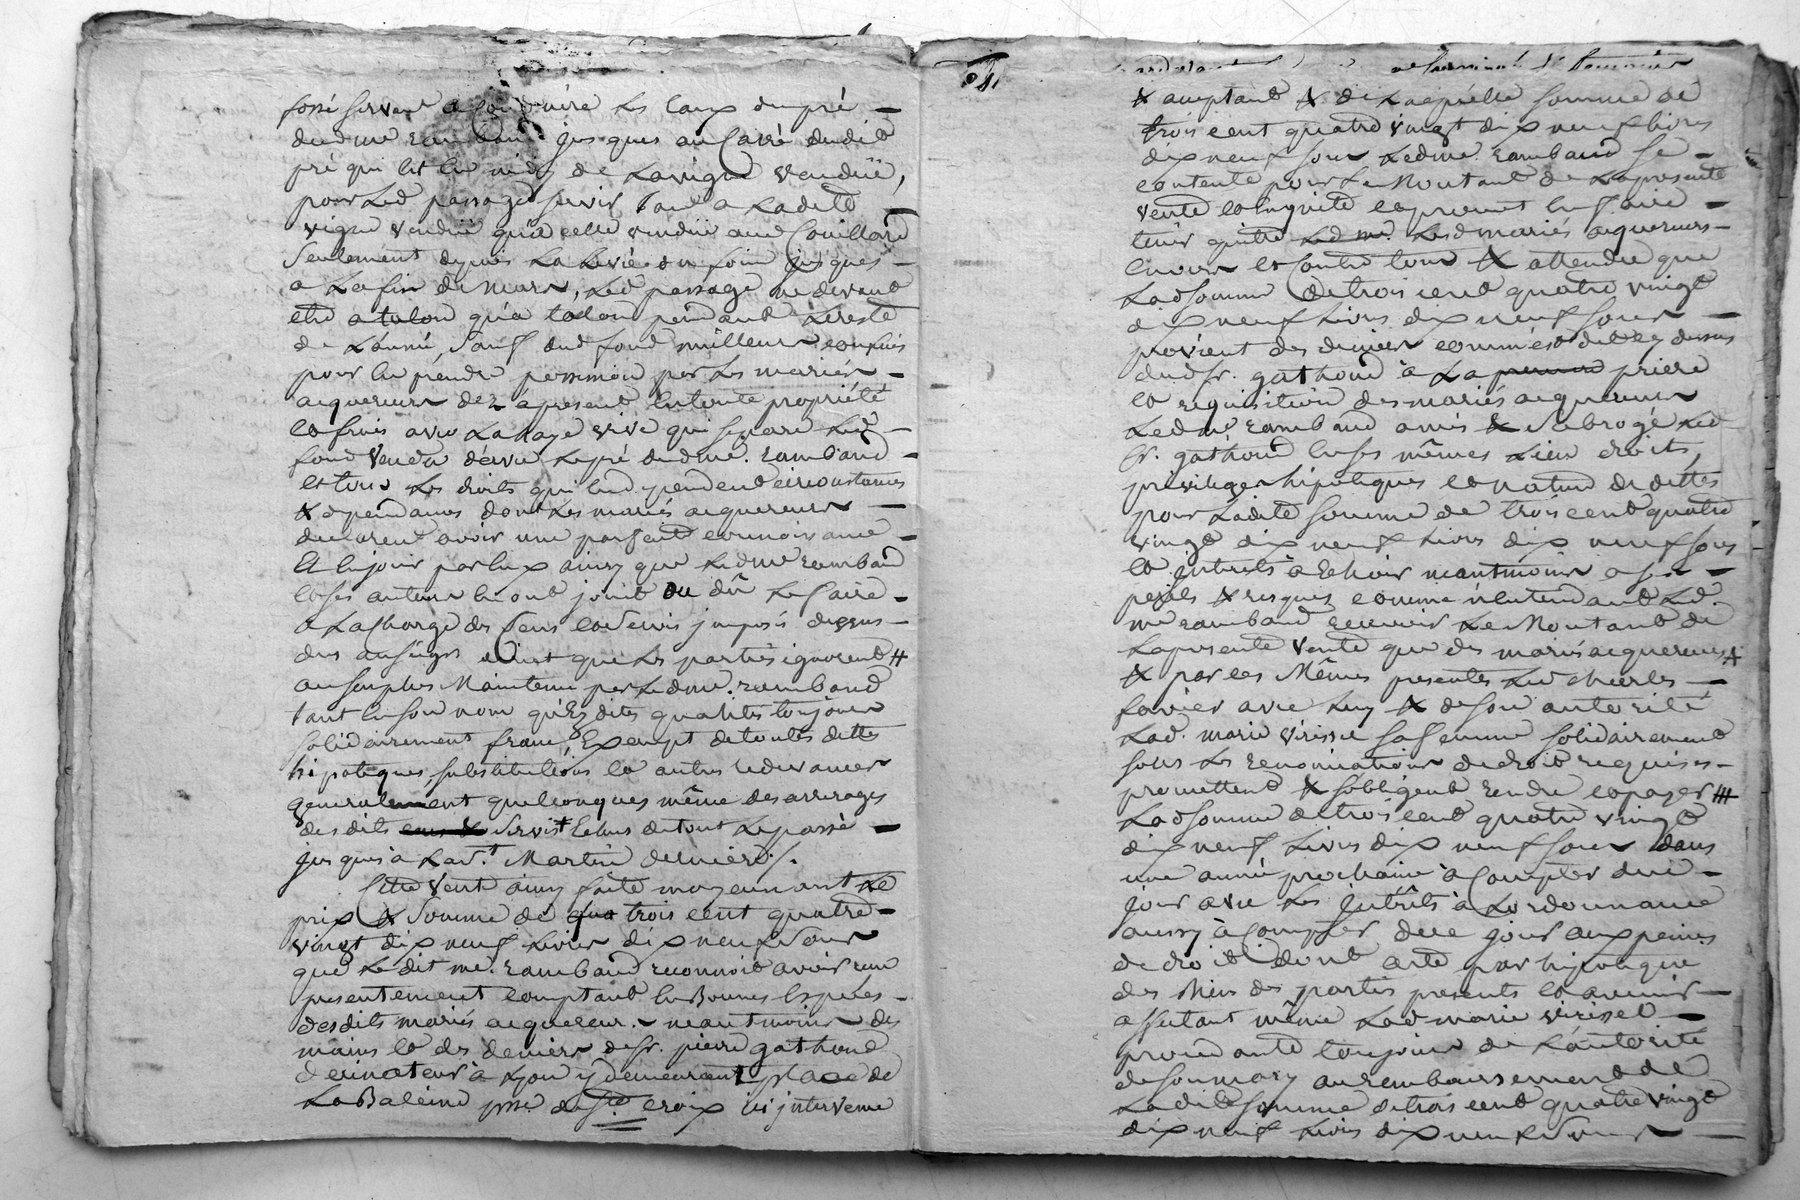 fossé servant a conduire les eaux du pré
dud me rambaud jusques au carré dudit
pré qui est au midy de la vigne vendüe,
pour led passage servir tant a la ditte
vigne vendüe qu'a celle vendüe aud Couillard
seulement depuis la levée du foin jusques
a la fin de mars, led passage ne devant
etre a talon qu'a talon pendant le reste
de l'année, sauf dud fond meilleurs confins
pour en prendre possession par les mariés
acquereurs dez a present en toute propriété
et fruis avec la haye vive qui separe led
fond vendu d'avec le pré dud me. rambaud
et tous les droits qui en dependent circonstances
& dependances dont les mariés acquereurs
declarent avoir une parfaite connoissance
et en jouir par eux ainsy que led me rambaud
et ses auteurs en ont jouit ou dû le faire
a la charge des cens et servis imposés dessus
dus aux seigrs directs que les parties ignorent #
au surplus maintenu par led me. rambaud
tant en son nom qu'ez dites qualités toujours
solidairement franc, exempt de toutes dettes
hipoteques substitutions et autres redevances
generalement quelconques même des arrerages
des dits cens & servis + echus de tout le passé
jusques à la st. Martin derniere ./.
Cette vente ainsy faite moyennant le
prix & somme de qua trois cent quatre
vingt dix neuf livres dix neuf sous
que le dit me. rambaud reconnoit avoir reçu
presentement comptant en bonnes especes
desdits mariés acquereurs neantmoins des
mains et des deniers de sr. pierre gathoud
à Lyon y demeurant place de
La Baleine psse de ste croix ici intervenu
& acceptant & de laquelle somme de
trois cent quatre vingt dix neuf livres
dix neuf sous led me. rambaud se
contente pour le montant de la presente
vente et en quitte et promet en faire
tenir quitte led me. lesd mariés acquereurs
envers et contre tous & attendu que
lad somme de trois cent quatre vingt
dix neuf livres dix neuf sous
provient des deniers comme est dit cy dessus
dud sr. gathoud à la priere
et requisition des mariés acquereurs
led me rambaud a mis & subrogé led
sr. gathoud en ses mêmes lieu droits,
privileges hipoteques et nature de dettes
pour ladite somme de trois cent quatre
vingt dix neuf livres dix neuf sous
et interets à echoir neantmoins a ses
perils & risques comme n'entendant led.
me rambaud recevoir le montant de
la presente vente que des mariés acquereurs +
& par ces mêmes presentes led charles
favier avec luy & de son autorité
lad. marie sa femme solidairement
sous les renonciations de droit requises
promettent & s'obligent rendre et payer #
lad somme de trois cent quatre vingt
dix neuf livres dix neuf sous dans
une année prochaine à compter de ce
jour avec les interêts à l'ordonnance
aussy à compter de ce jour aux peines
de droit dont acte par hipoteque
des biens des parties presents et avenir
affectant même lad marie
procedante toujours de l'autorité
de son mary au remboursement de
la dite somme de trois cent quatre vingt
dix neuf livres dix neuf sous